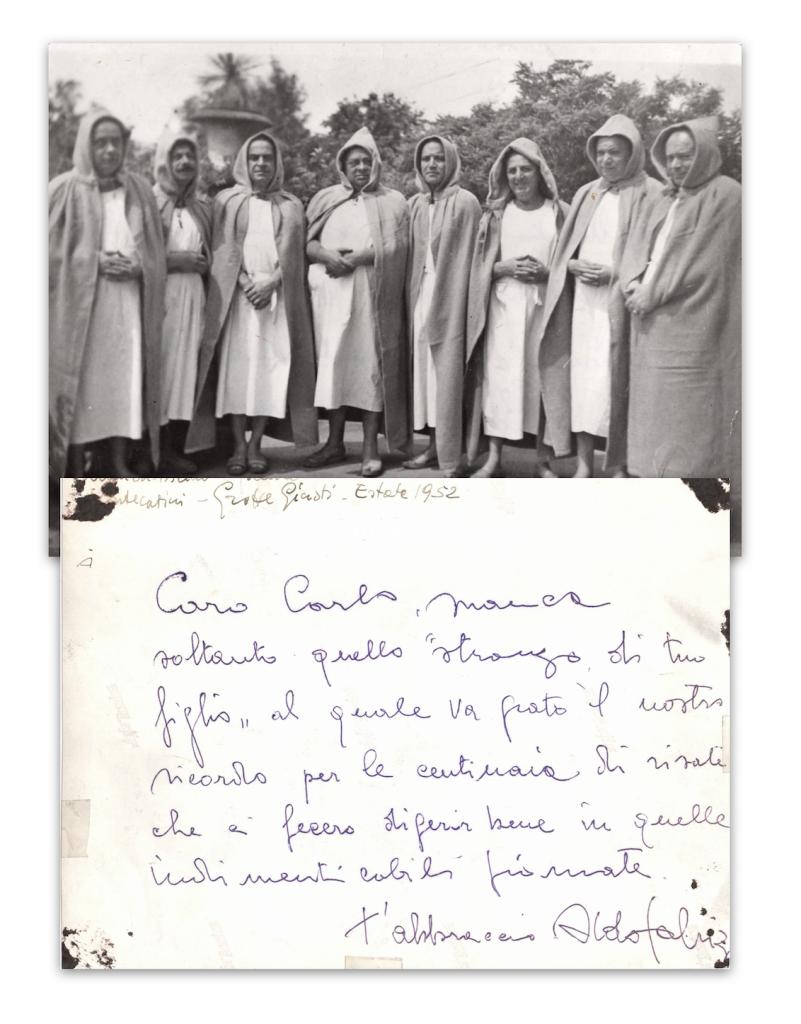 ntecatini - Grotte Giusti - Estate 1952
Caro Carlo, manca
soltanto quello "stronzo di tuo
figlio„ al quale va grato il nostro
ricordo per le centinaia di risate
che ci fecero digerir bene in quelle
indimenticabili giornate.
t'abbraccio Aldo Fabriz